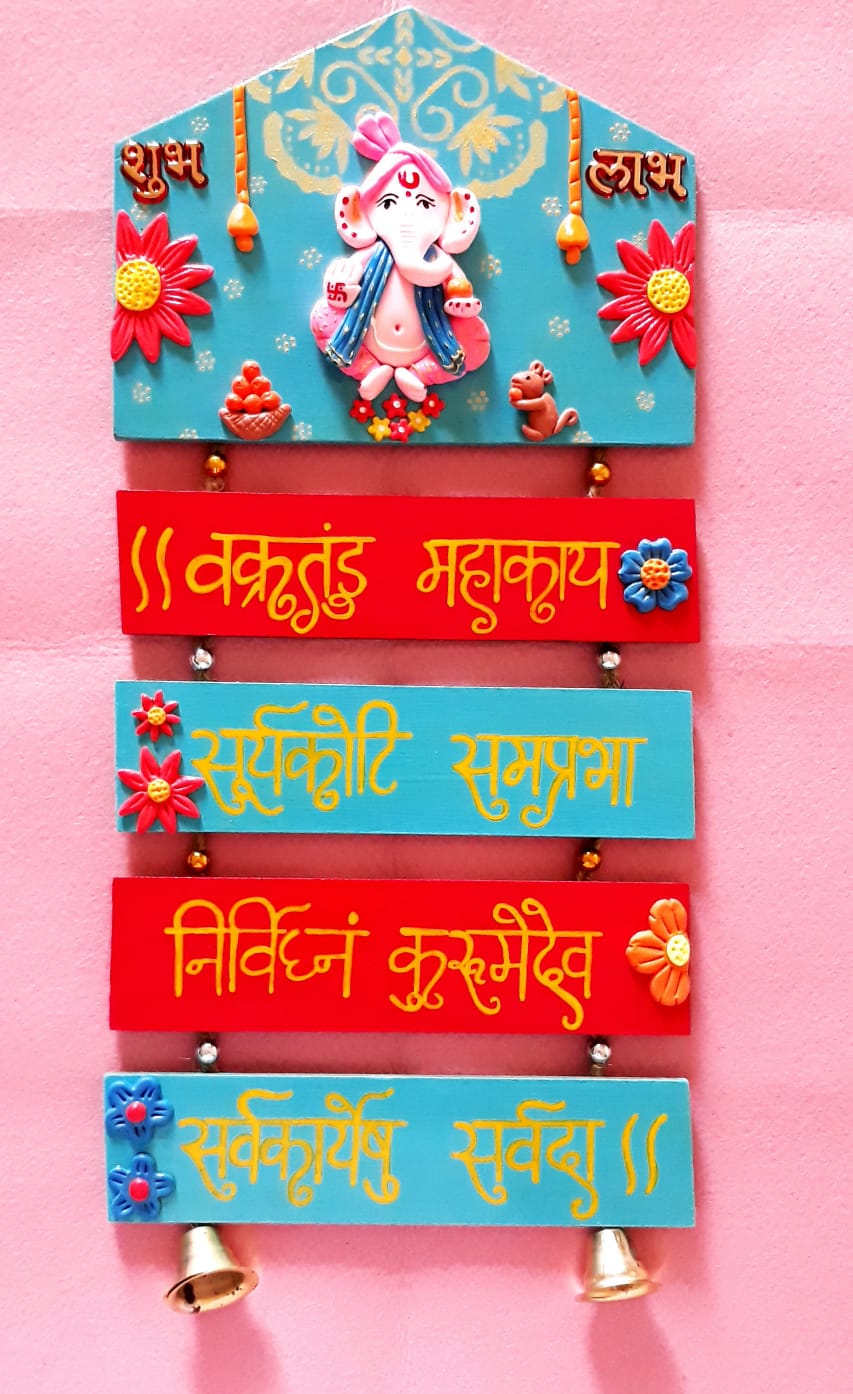 शुभ लाभ
।।वक्रतुंड महाकाय
सूर्यकोटि समप्रभा
निर्विघ्नं कुरुमेदेव
सर्वकार्येषु सर्वदा।।